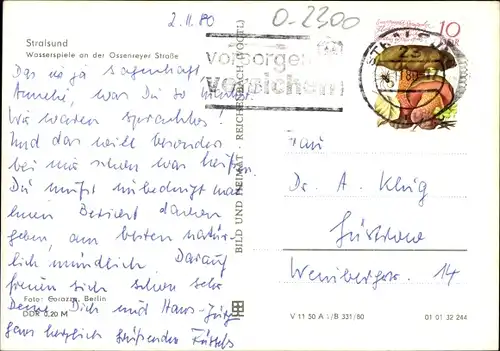 2.11.80
0-2300
Stralsund
Wasserspiele an der Ossenreyer Straße
10
DDR
vorsorgen
versichern
Das ist ja sagenhaft
was Du so
Wir waren sprachlos!
Und das will besonders
bei mir schon was heißen.
Du mußt unbedingt mal
einen Bericht davon
geben, am besten natür-
lich mündlich. Darauf
freuen sich schon sehr
Deine, Dich und Hans-Jürg
ganz herzlich grüßenden
Frau
Dr. A. Klug
Güstrow
14
BILD UND HEIMAT · REICHENBACH (VOGTL)
Foto: Corazza, Berlin
DDR 0,20 M
V 11 50 A 1/B 331/80
01 01 32 244